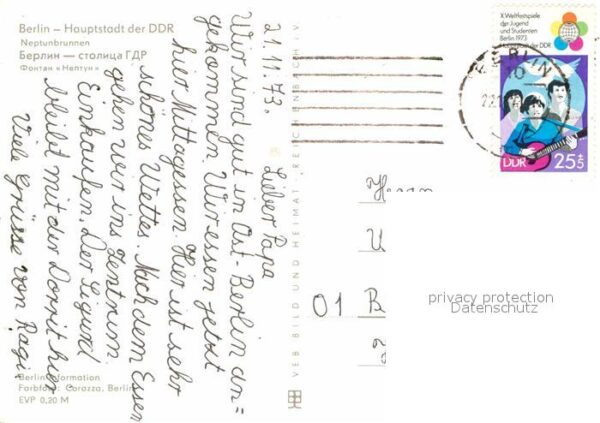 Berlin – Hauptstadt der DDR
Neptunbrunnen
Берлин — столица ГДР
Фонтан «Нептун»
21.11.73.
Lieber Papa
Wir sind gut in Ost-Berlin an=
gekommen. Wir essen jetzt
hier Mittagessen. Hier ist sehr
schönes Wetter. Nach dem Essen
gehen wir ins Zentrum
Einkaufen. Der Sigurd
bleibt mit der Dorrit hier
Viele Grüsse von Ragi.
Berlin-Information
Farbfoto: Corazza, Berlin
EVP 0,20 M
VEB BILD UND HEIMAT REICHENBACH I. V.
X. Weltfestspiele
der Jugend
und Studenten
Berlin 1973
Hauptstadt der DDR
BERLIN
10
DDR 25+5
Herrn
U
01 B
privacy protection
Datenschutz